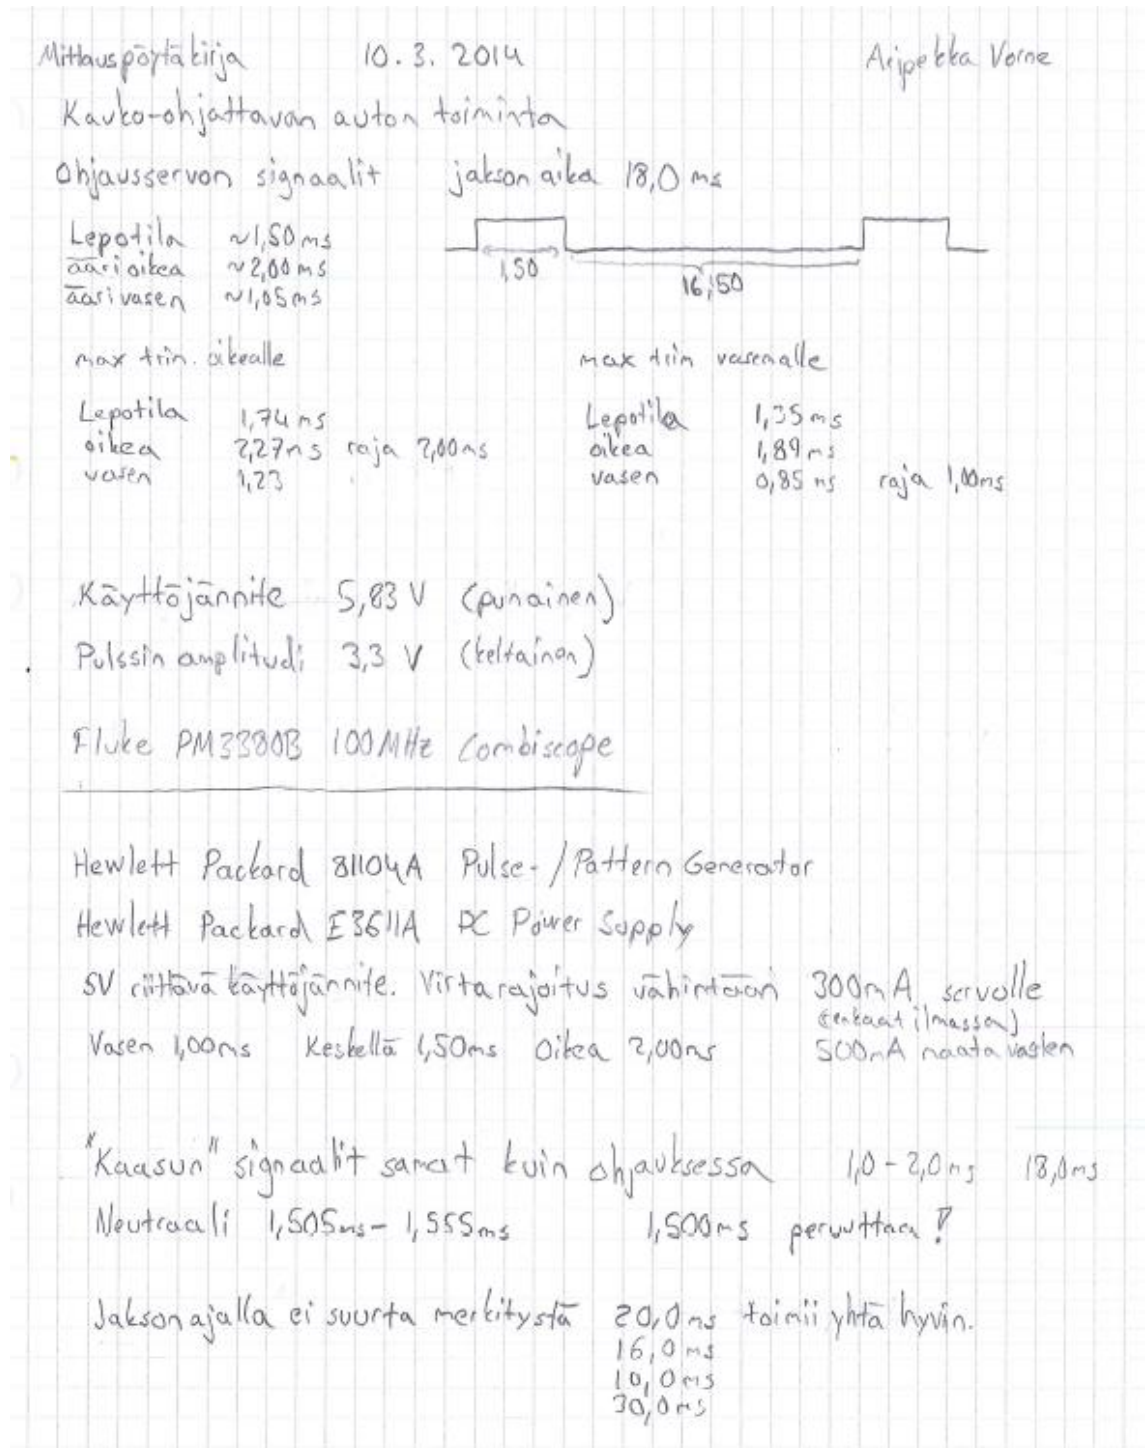 Mittauspöytäkirja 10.3.2014 Aripekka Vorne
Kauko-ohjattavan auton toiminta
Ohjausservon signaalit jakson aika 18,0 ms
Lepotila ~1,50ms
ääri oikea ~2,00ms
ääri vasen ~1,05ms
1,50
16,50
max trim. oikealle
Lepotila 1,74ms
oikea 2,27ms raja 2,00ms
vasen 1,23
max trim vasenalle
Lepotila 1,35ms
oikea 1,89ms
vasen 0,85ms raja 1,00ms
Käyttöjännite 5,83 V (punainen)
Pulssin amplitudi 3,3 V (keltainen)
Fluke PM3380B 100MHz Combiscope
Hewlett Packard 81104A Pulse-/Pattern Generator
Hewlett Packard E3611A DC Power Supply
5V riittävä käyttöjännite. Virtarajoitus vähintään 300mA servolle
(renkaat ilmassa)
Vasen 1,00ms Keskellä 1,50ms Oikea 2,00ms 500mA maata vasten
"Kaasun" signaalit samat kuin ohjauksessa 1,0-2,0ms 18,0ms
Neutraali 1,505ms-1,555ms 1,500ms peruuttaa!
Jakson ajalla ei suurta merkitystä 20,0ms toimii yhtä hyvin.
16,0ms
10,0ms
30,0ms